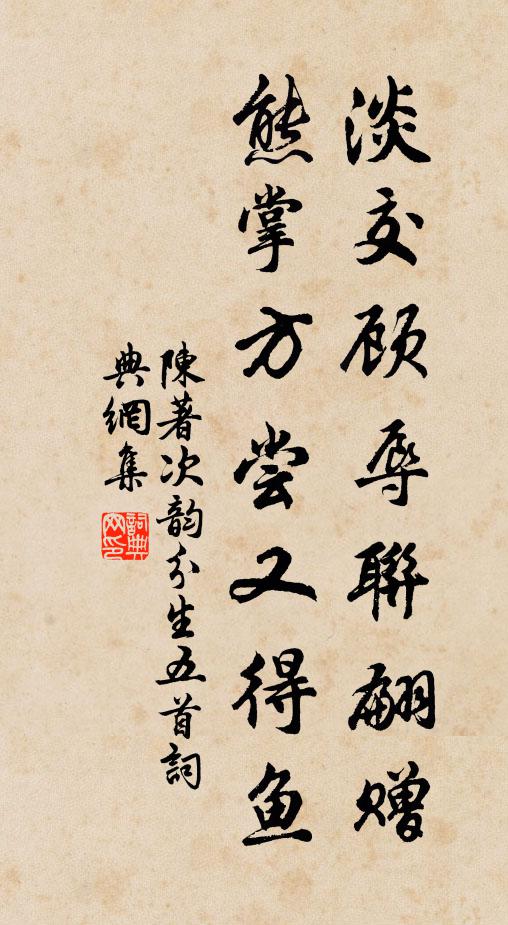 淡交顾辱聯翩赠
熊掌方尝又得鱼
陳著次韵分生五首詞
典網集
詞典網印